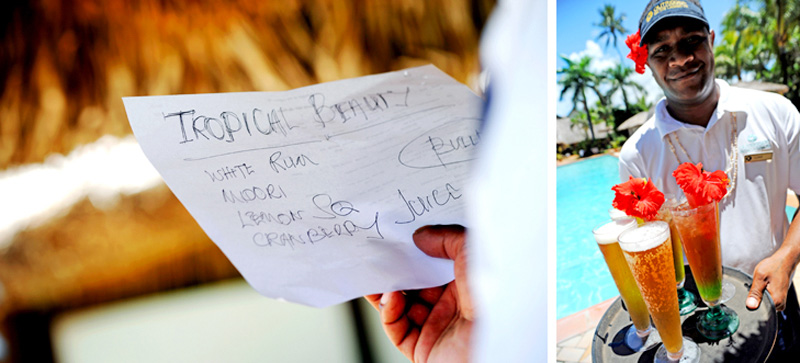 TROPICAL BEAUTY
WHITE RUM
MIDORI
LEMON SQ
CRANBERRY Juice